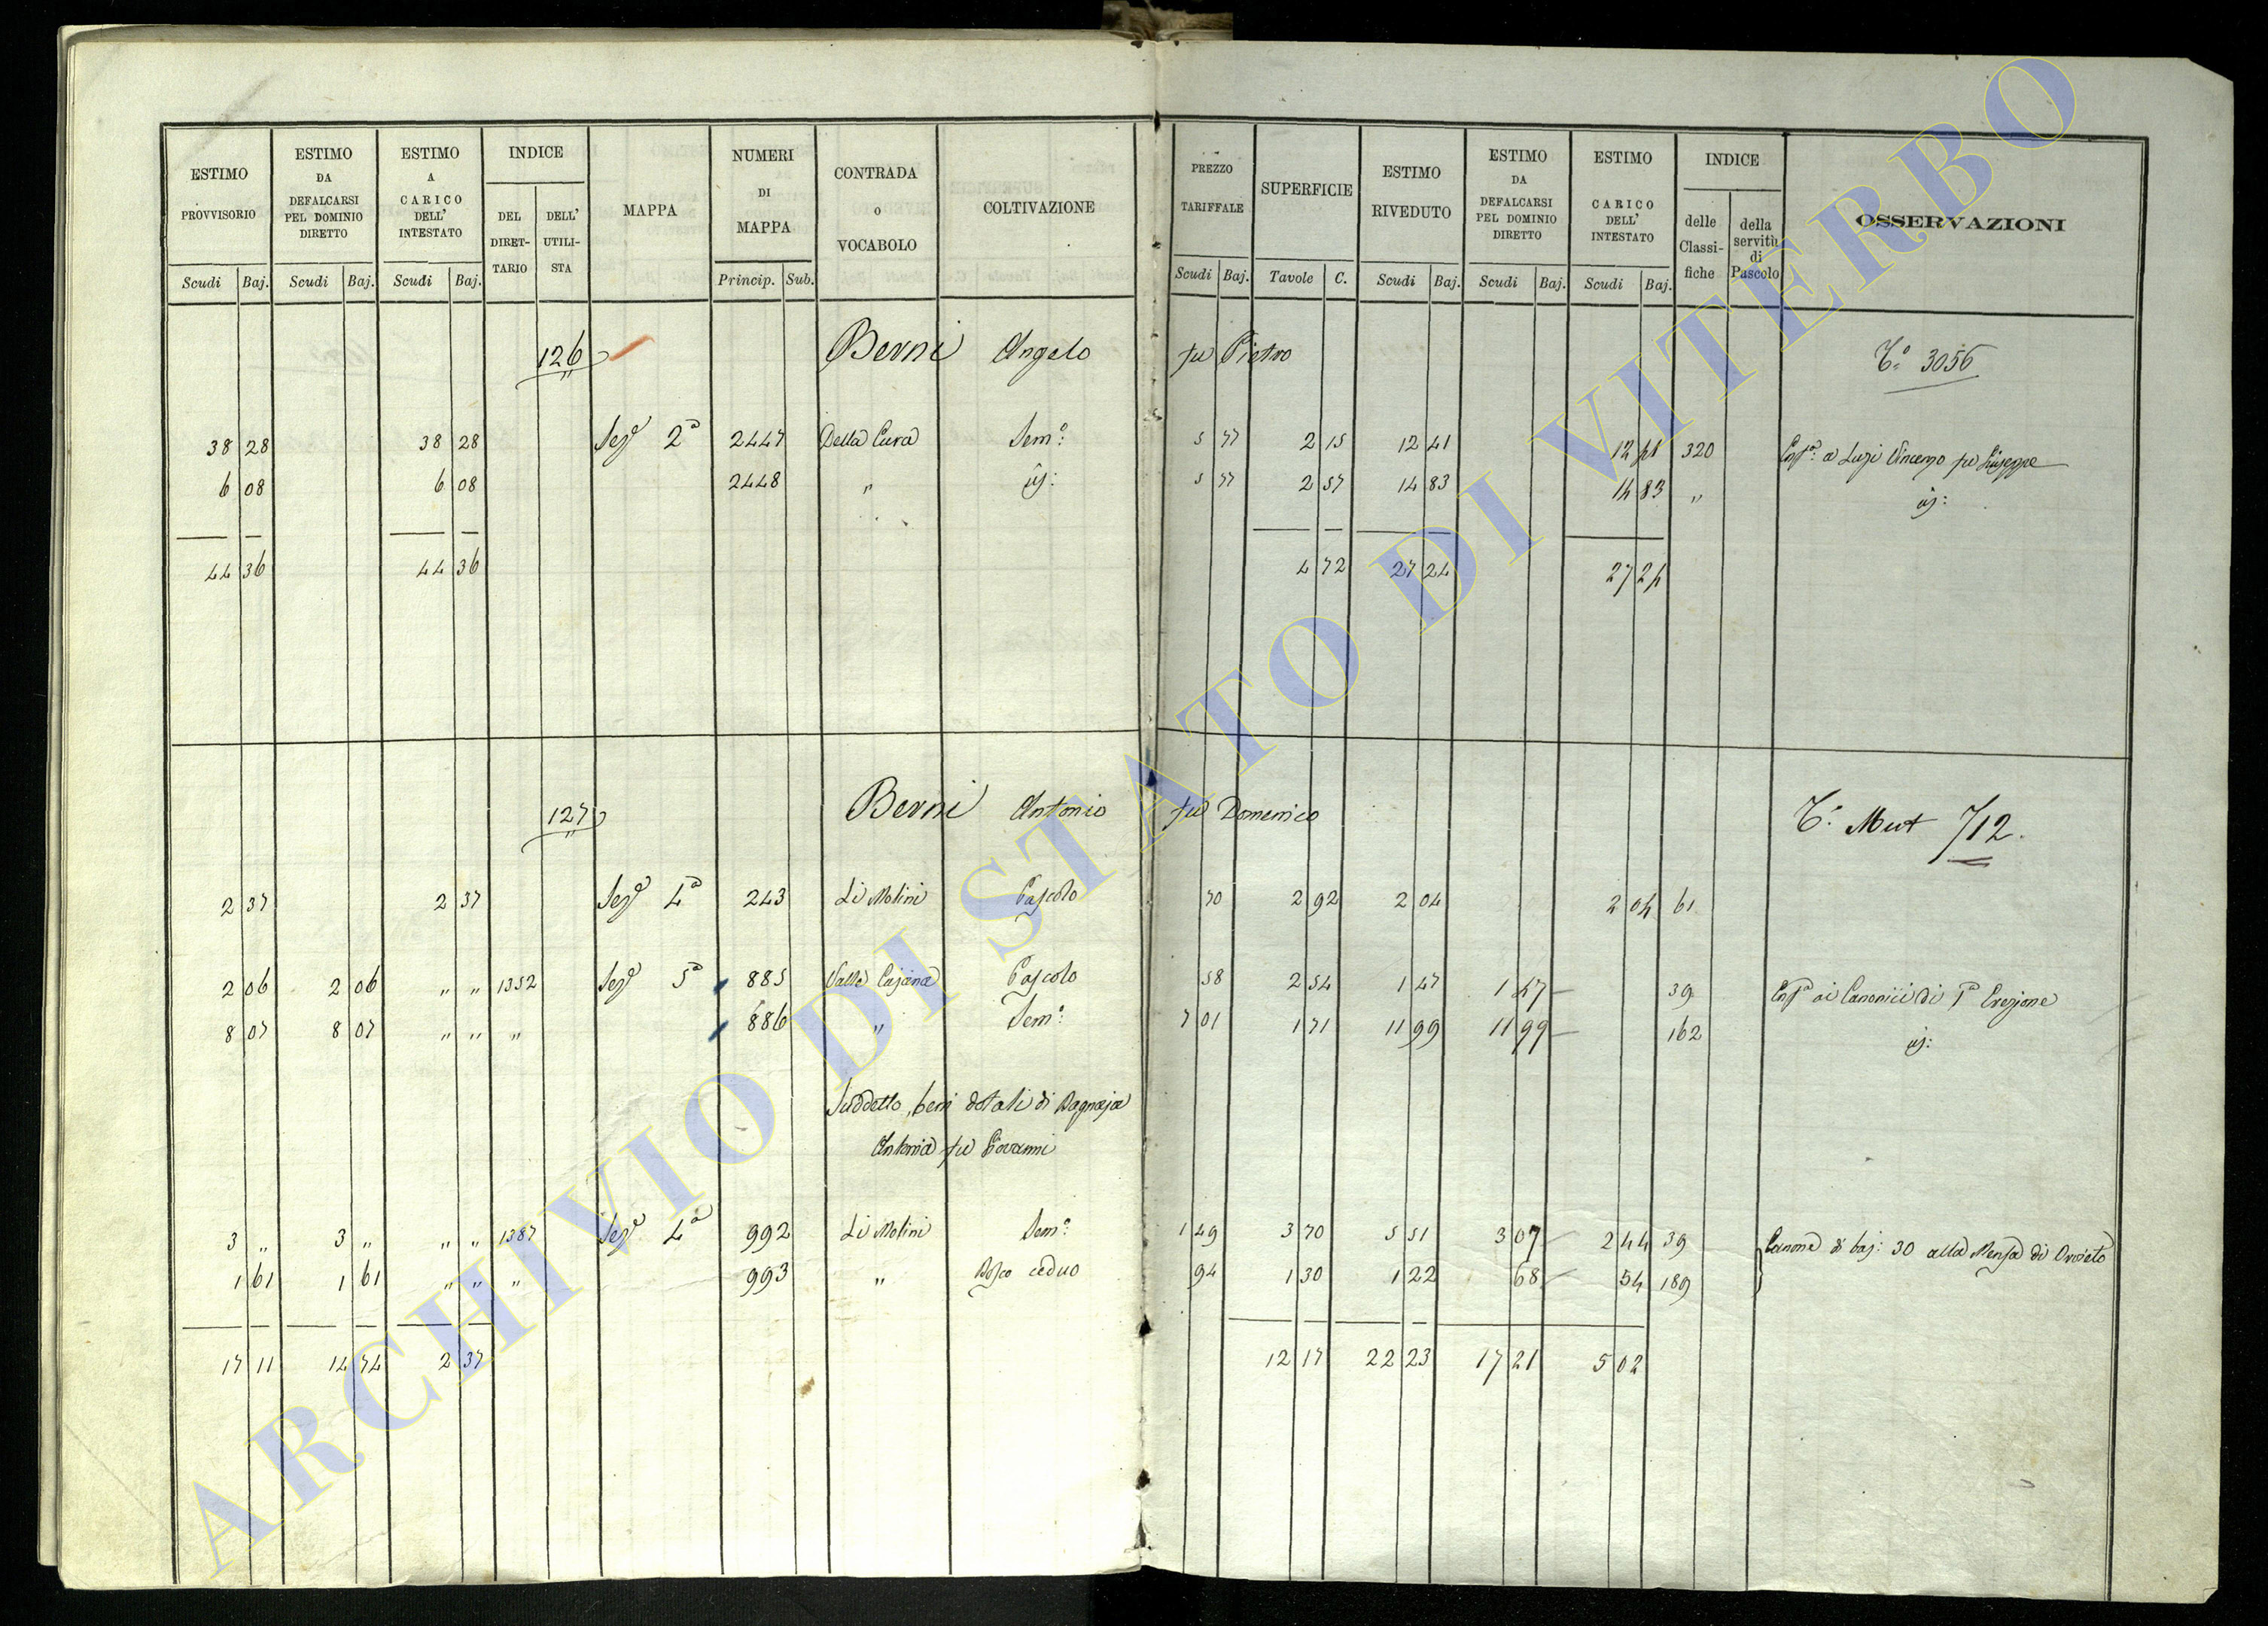 ESTIMO PROVVISORIO Scudi Baj.
ESTIMO DA DEFALCARSI PEL DOMINIO DIRETTO Scudi Baj.
ESTIMO A CARICO DELL' INTESTATO Scudi Baj.
INDICE DEL DIRETTARIO DELL' UTILISTA
MAPPA
NUMERI DI MAPPA Princip. Sub.
CONTRADA o VOCABOLO
COLTIVAZIONE
PREZZO TARIFFALE Scudi Baj.
SUPERFICIE Tavole C.
ESTIMO RIVEDUTO Scudi Baj.
ESTIMO DA DEFALCARSI PEL DOMINIO DIRETTO Scudi Baj.
ESTIMO A CARICO DELL' INTESTATO Scudi Baj.
INDICE delle Classifiche della servitù di Pascolo
OSSERVAZIONI
126 Berni Angelo fu Pietro T.° 3056
38 28 38 28 Sez.ª 2ª 2447 Della Cura Sem.° 5 77 2 15 12 41 12 41 320 Enf.ª a Luzi Vincenzo fu Giuseppe
6 08 6 08 2448 " id: 5 77 2 57 14 83 14 83 " id:
44 36 44 36 4 72 27 24 27 24
127 Berni Antonio fu Domenico T.° Mut 712.
2 37 2 37 Sez.ª 4ª 243 Li Molini Pascolo 70 2 92 2 04 2 04 61
2 06 2 06 " " 1352 Sez.ª 5ª 885 Valle Cajana Pascolo 58 2 54 1 47 1 47 39 Enf.ª ai Canonici di 1ª Erezione
8 07 8 07 " " " 886 " Sem.° 7 01 1 71 11 99 11 99 162 id:
Suddetto, beni dotali di Bagnaja
Antonia fu Giovanni
3 " 3 " " " 1387 Sez.ª 4ª 992 Li Molini Sem.° 1 49 3 70 5 51 3 07 2 44 39 Canone di baj: 30 alla Mensa di Orvieto
1 61 1 61 " " " 993 " Bosco ceduo 94 1 30 1 22 68 54 189
17 11 14 74 2 37 12 17 22 23 17 21 5 02
ARCHIVIO DI STATO DI VITERBO